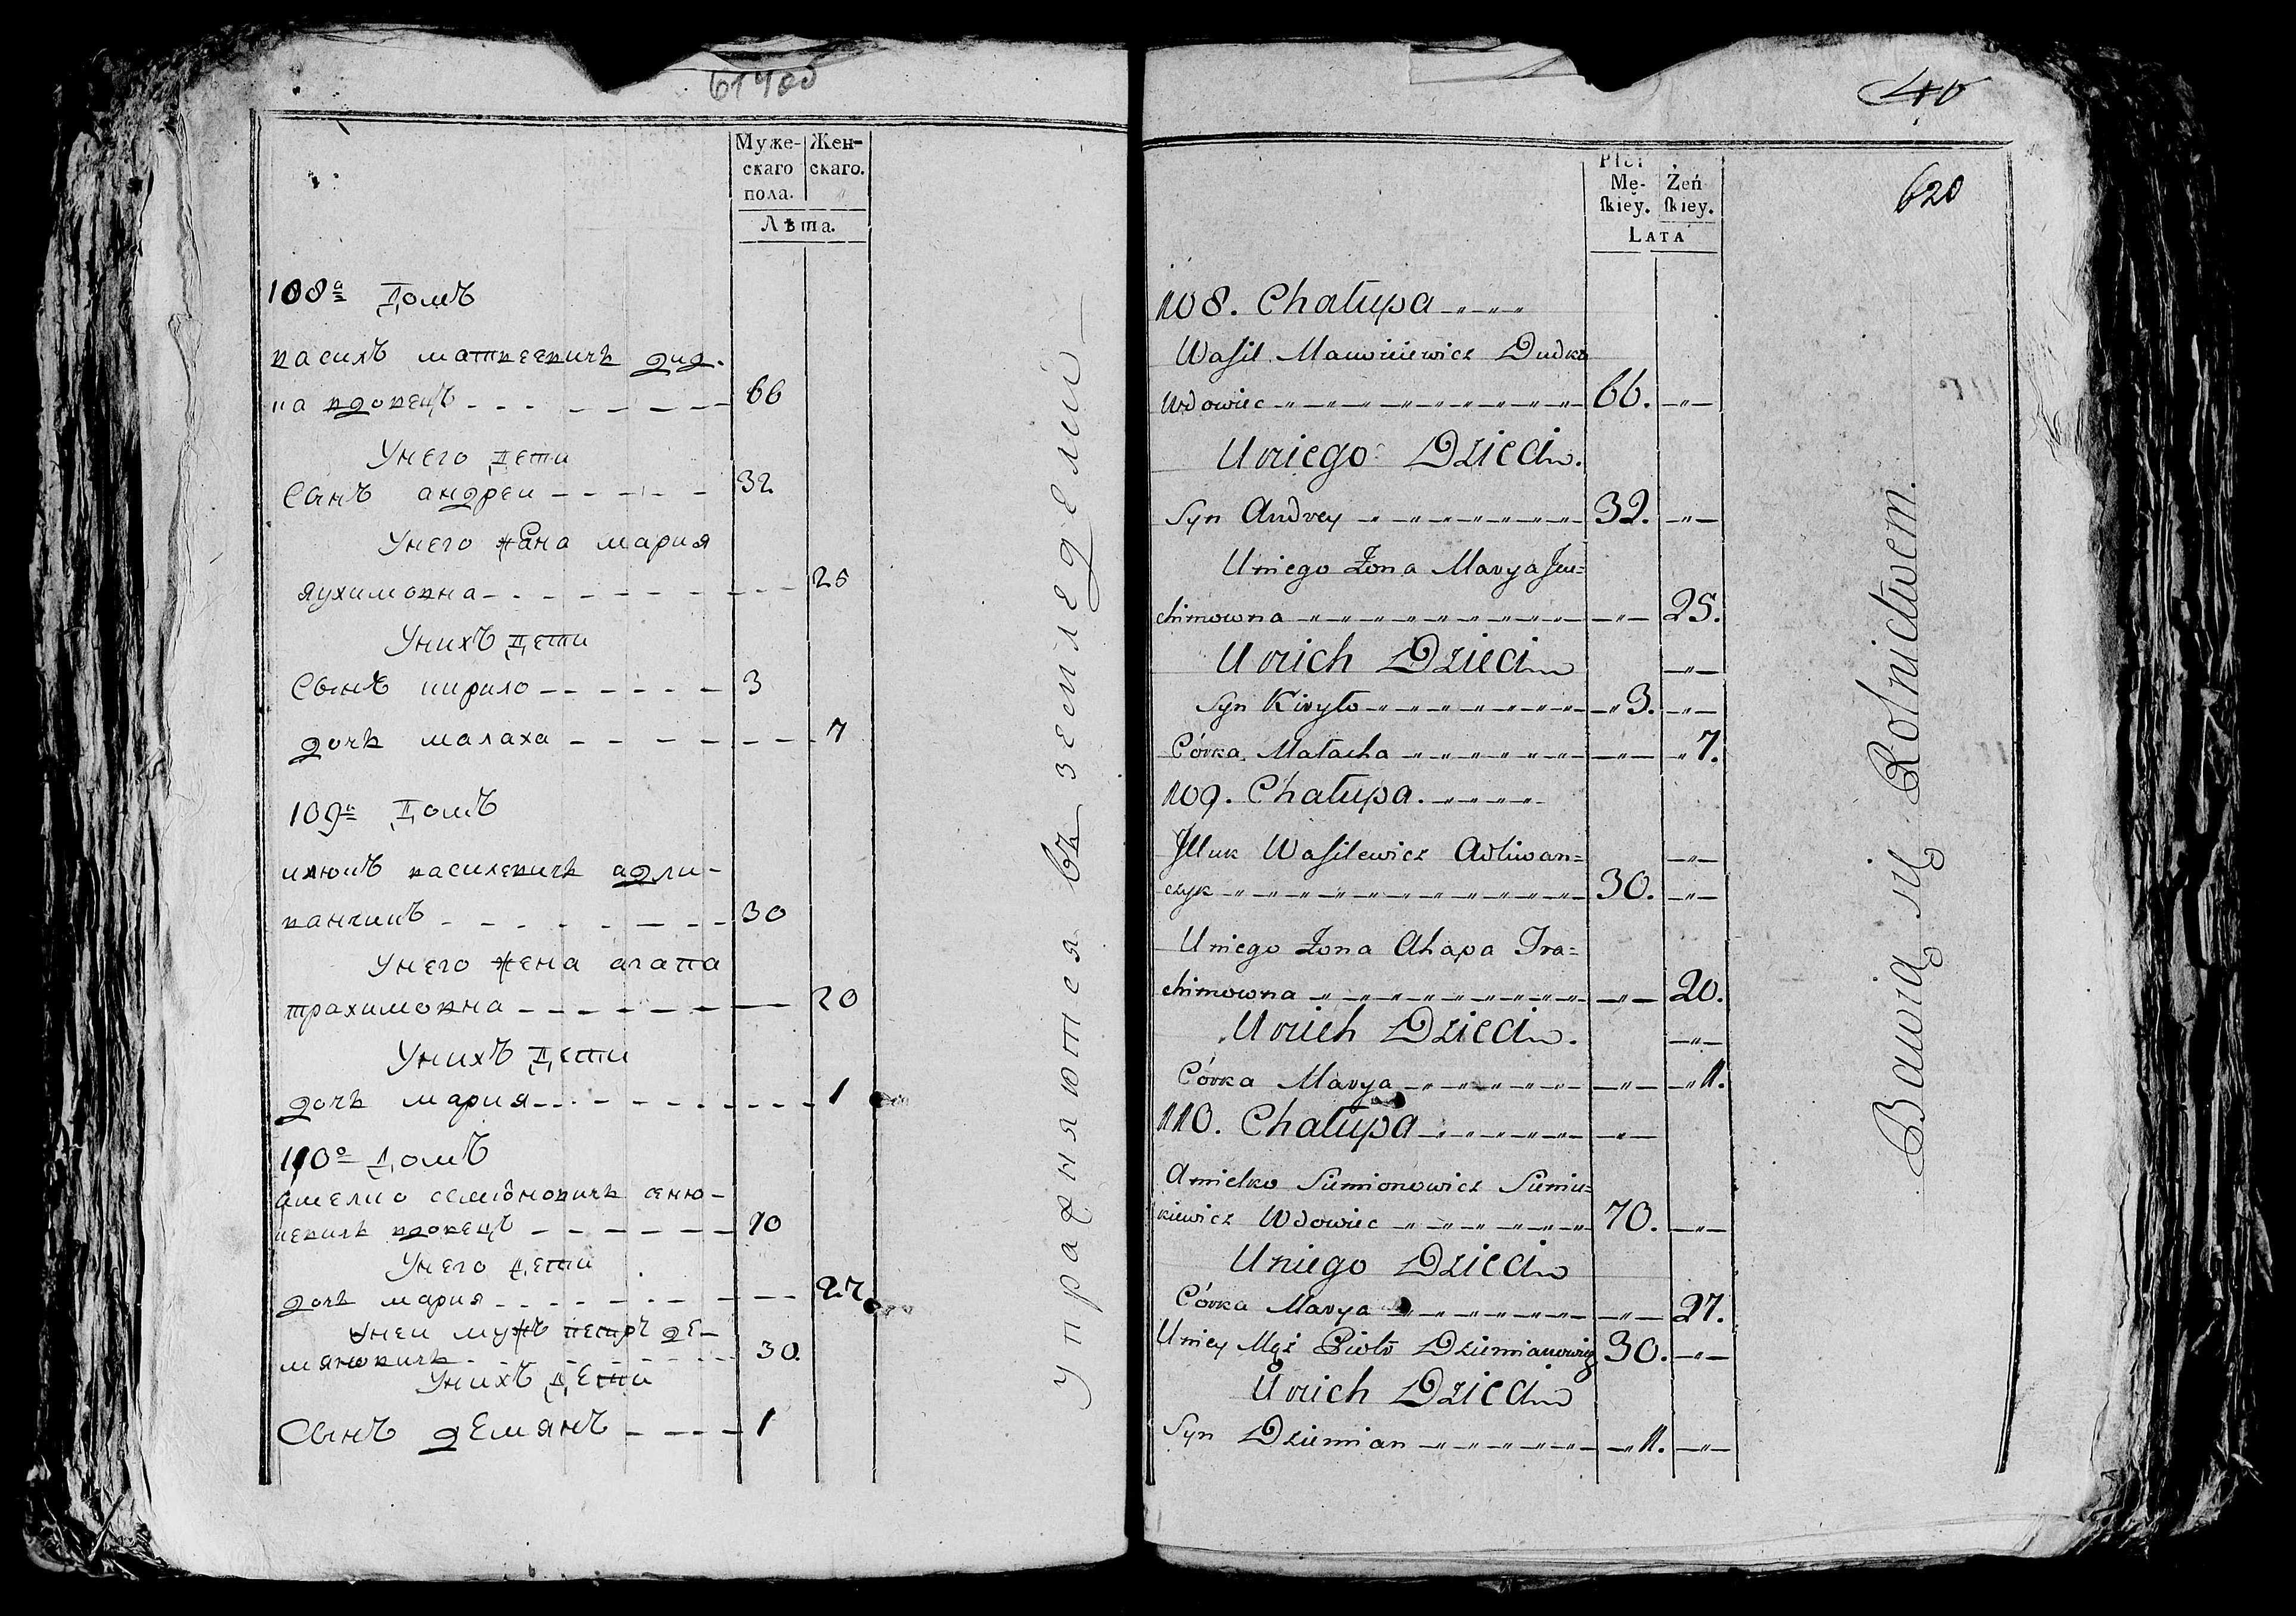 Муже-
скаго
пола.
Жен-
скаго.
Лѣта.
108а Домъ
василъ матвеевичъ дуд-
ка вдовецъ 66
Унего дети
Сынъ андреи 32
Унего жена мария
яухимовна 25
Унихъ дети
Сынъ кирило 3
дочь малаха 7
109й Домъ
илюкъ василевичъ адли-
ванчикъ 30
Унего жена агапа
трахимовна 20
Унихъ дети
дочь мария 1
110о Домъ
амелко семіоновичъ сеню-
кевичъ вдовецъ 70
Унего дети
дочь мария 27
Унеи мужъ петръ де-
мяновичъ 30
Унихъ дети
Сынъ демянъ 1
упражняются въ земледелии
40
620
Płci
Mę-
ſkiey.
Żeń
ſkiey.
LATA
108. Chałupa
Wasil Mauwiiewicz Dudka
Wdowiec 66.
Uniego Dzieci.
Syn Andrey 32.
Uniego Żona Marya Jeu=
chimowna 25.
Unich Dzieci
Syn Kiryło 3.
Córka Małacha 7.
109. Chałupa.
Illuk Wasilewicz Adliwan=
czyk 30.
Uniego Żona Ahapa Tra=
chimowna 20.
Unich Dzieci.
Córka Marya 1.
110. Chałupa
Amielko Siemionowicz Sieniu=
kiewicz Wdowiec 70.
Uniego Dzieci
Córka Marya 27.
Uniey Mąż Piotr Dziemianowicz 30.
Unich Dzieci
Syn Dziemian 1.
Bawią się Rolnictwem.